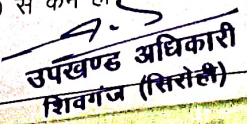 से कम
उपखण्ड अधिकारी
शिवगंज (सिरोही)